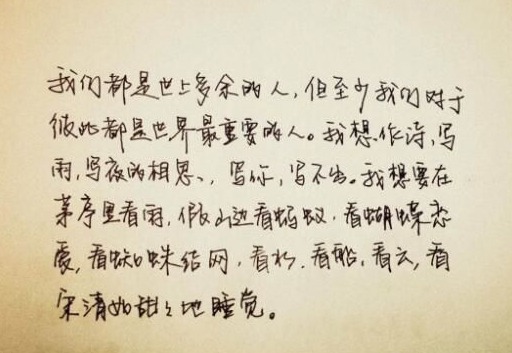 我们都是世上多余的人，但至少我们对于
彼此都是世界最重要的人。我想作诗，写
雨，写夜的相思，写你，写不出。我想要在
茅亭里看雨，假山边看蚂蚁，看蝴蝶恋
爱，看蜘蛛结网，看水，看船，看云，看
宋清如甜々地睡觉。